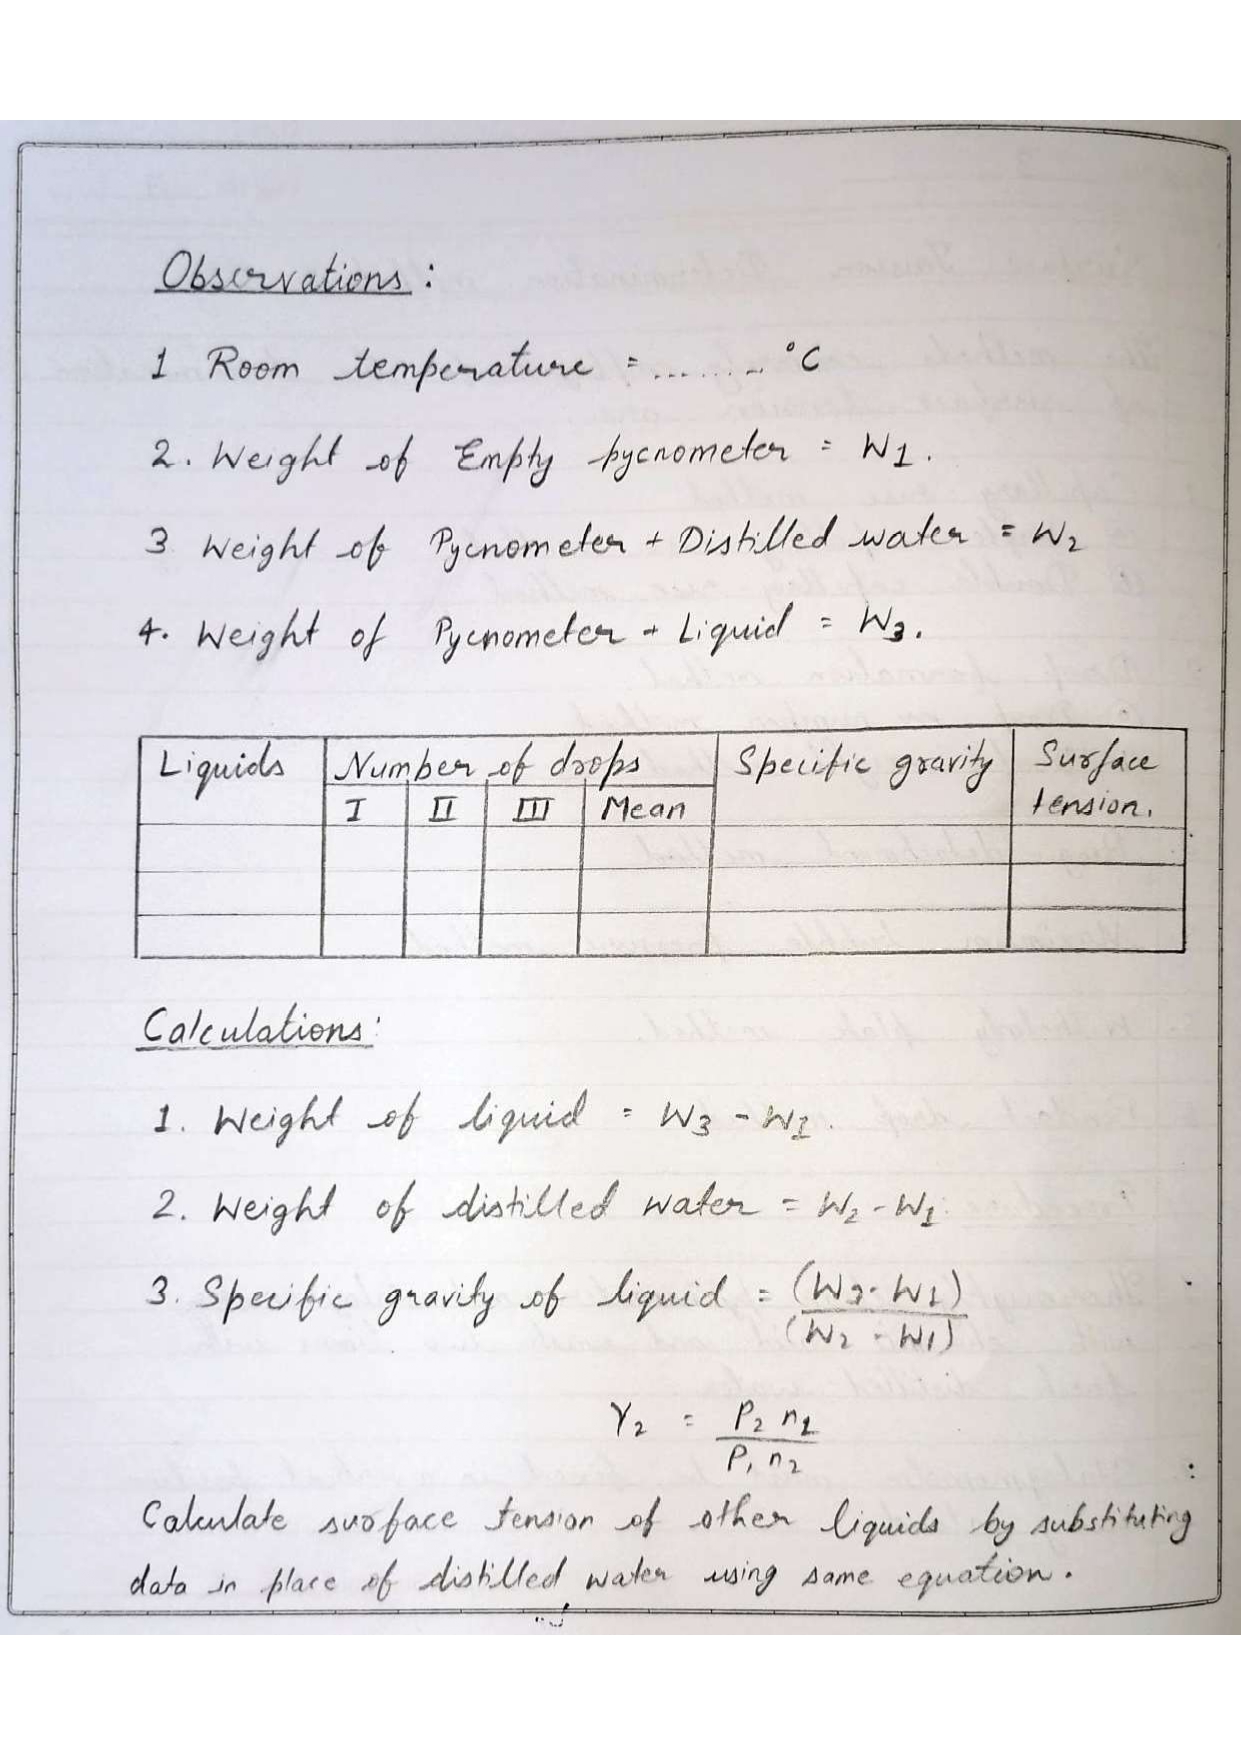 Observations :
1 Room temperature = ........ °C
2. Weight of Empty pycnometer = W1.
3 Weight of Pycnometer + Distilled water = W2
4. Weight of Pycnometer + Liquid = W3.
Liquids Number of drops Specific gravity Surface
I II III Mean tension.
Calculations:
1. Weight of liquid = W3 - W1.
2. Weight of distilled water = W2 - W1.
3. Specific gravity of liquid = (W3 - W1)
(W2 - W1)
γ2 = P2 n1
P1 n2
Calculate surface tension of other liquids by substituting
data in place of distilled water using same equation.